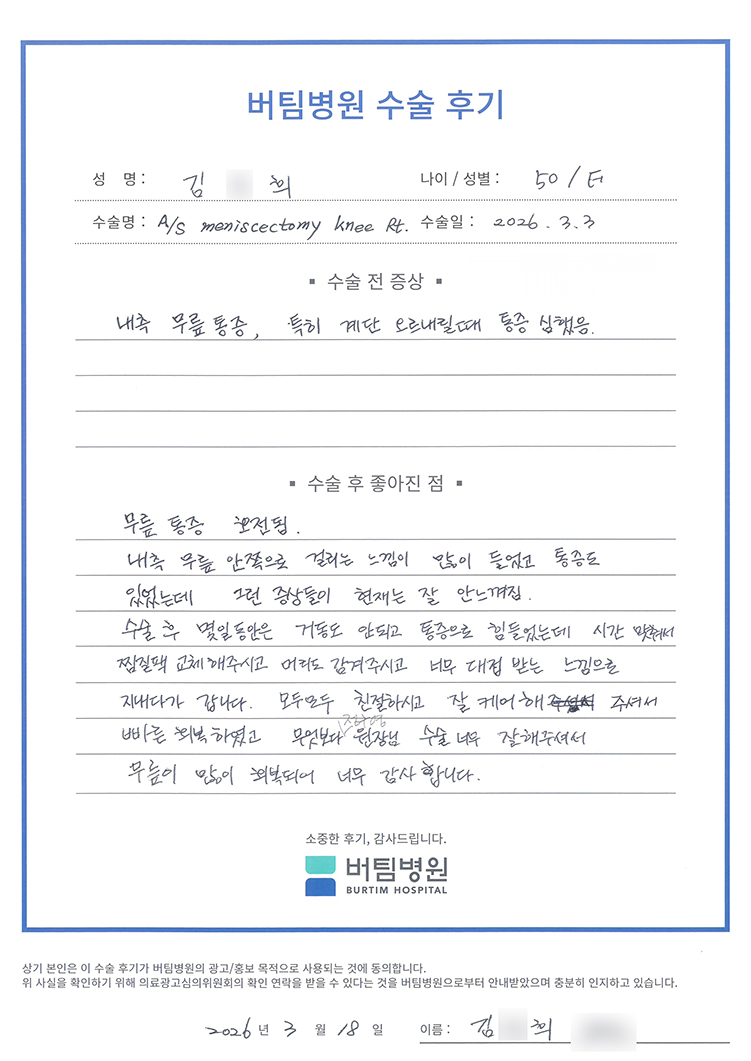 버팀병원 수술 후기
성 명 : 김 희 나이 / 성별 : 50 / F
수술명 : A/S meniscectomy knee Rt. 수술일 : 2026 . 3. 3
▪ 수술 전 증상 ▪
내측 무릎 통증, 특히 계단 오르내릴때 통증 심했음.
▪ 수술 후 좋아진 점 ▪
무릎 통증 호전됨.
내측 무릎 안쪽으로 걸리는 느낌이 많이 들었고 통증도
있었는데 그런 증상들이 현재는 잘 안느껴짐.
수술 후 몇일동안은 거동도 안되고 통증으로 힘들었는데 시간 맞춰서
찜질팩 교체해주시고 머리도 감겨주시고 너무 대접 받는 느낌으로
지내다가 갑니다. 모두모두 친절하시고 잘 케어해 주셔서
빠른 회복하였고 무엇보다 원장님 수술 너무 잘해주셔서
무릎이 많이 회복되어 너무 감사합니다.
소중한 후기, 감사드립니다.
버팀병원
BURTIM HOSPITAL
상기 본인은 이 수술 후기가 버팀병원의 광고/홍보 목적으로 사용되는 것에 동의합니다.
위 사실을 확인하기 위해 의료광고심의위원회의 확인 연락을 받을 수 있다는 것을 버팀병원으로부터 안내받았으며 충분히 인지하고 있습니다.
2026 년 3 월 18 일 이름 : 김 희